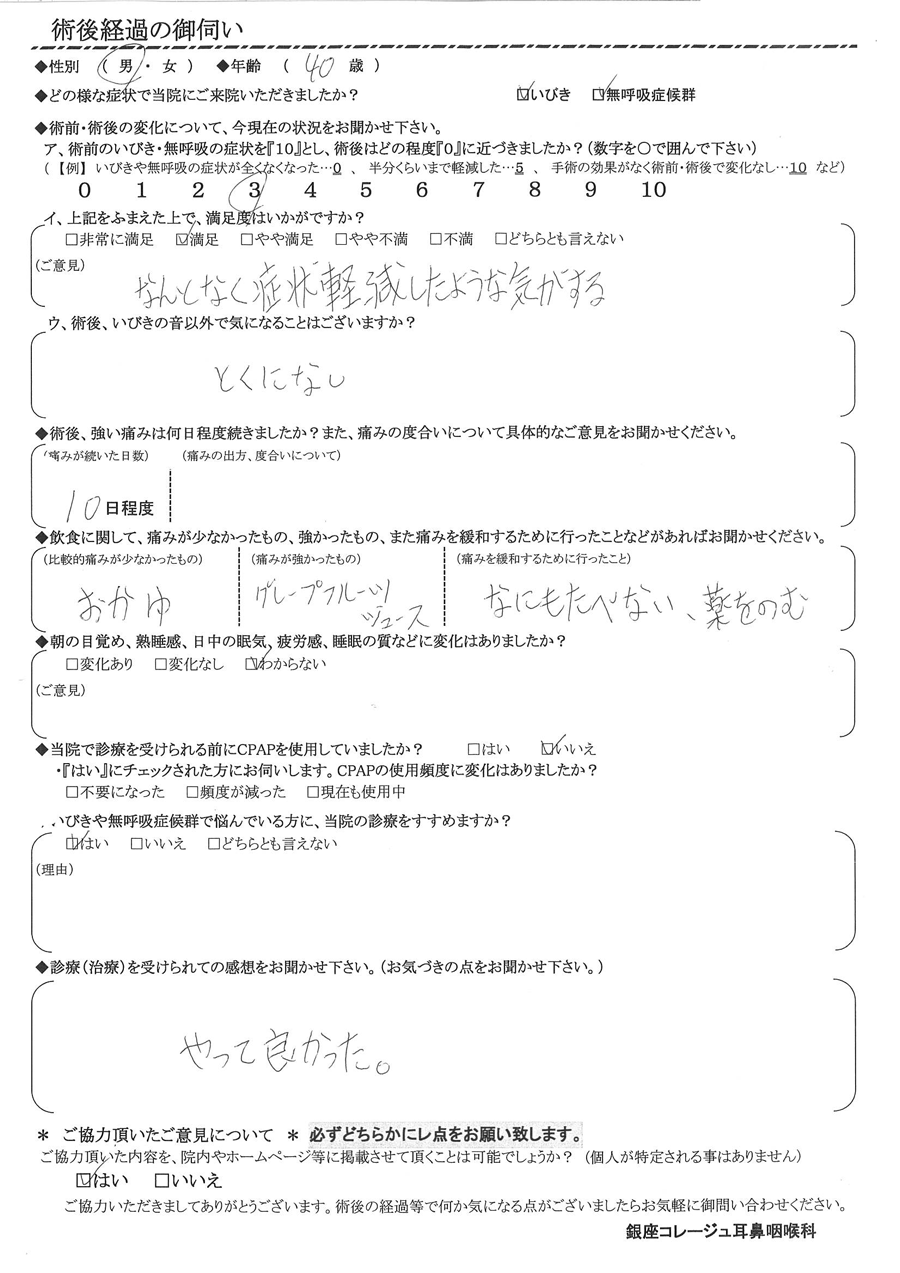 術後経過の御伺い
◆性別 ( 男 ・ 女 ) ◆年齢 ( 40 歳 )
◆どの様な症状で当院にご来院いただきましたか? ☑いびき ☑無呼吸症候群
◆術前・術後の変化について、今現在の状況をお聞かせ下さい。
ア、術前のいびき・無呼吸の症状を『10』とし、術後はどの程度『0』に近づきましたか?(数字を○で囲んで下さい)
(【例】いびきや無呼吸の症状が全くなくなった…0 、 半分くらいまで軽減した…5 、 手術の効果がなく術前・術後で変化なし…10 など)
0 1 2 3 4 5 6 7 8 9 10
イ、上記をふまえた上で、満足度はいかがですか?
□非常に満足 ☑満足 □やや満足 □やや不満 □不満 □どちらとも言えない
(ご意見)
なんとなく症状軽減したような気がする
ウ、術後、いびきの音以外で気になることはございますか?
とくになし
◆術後、強い痛みは何日程度続きましたか?また、痛みの度合いについて具体的なご意見をお聞かせください。
(痛みが続いた日数) (痛みの出方、度合いについて)
10日程度
◆飲食に関して、痛みが少なかったもの、強かったもの、また痛みを緩和するために行ったことなどがあればお聞かせください。
(比較的痛みが少なかったもの) (痛みが強かったもの) (痛みを緩和するために行ったこと)
おかゆ グレープフルーツ なにもたべない、薬をのむ
ジュース
◆朝の目覚め、熟睡感、日中の眠気、疲労感、睡眠の質などに変化はありましたか?
□変化あり □変化なし ☑わからない
(ご意見)
◆当院で診療を受けられる前にCPAPを使用していましたか? □はい ☑いいえ
・『はい』にチェックされた方にお伺いします。CPAPの使用頻度に変化はありましたか?
□不要になった □頻度が減った □現在も使用中
いびきや無呼吸症候群で悩んでいる方に、当院の診療をすすめますか?
☑はい □いいえ □どちらとも言えない
(理由)
◆診療(治療)を受けられての感想をお聞かせ下さい。(お気づきの点をお聞かせ下さい。)
やって良かった。
＊ ご協力頂いたご意見について ＊ 必ずどちらかにレ点をお願い致します。
ご協力頂いた内容を、院内やホームページ等に掲載させて頂くことは可能でしょうか? (個人が特定される事はありません)
☑はい □いいえ
ご協力いただきましてありがとうございます。術後の経過等で何か気になる点がございましたらお気軽に御問い合わせください。
銀座コレージュ耳鼻咽喉科